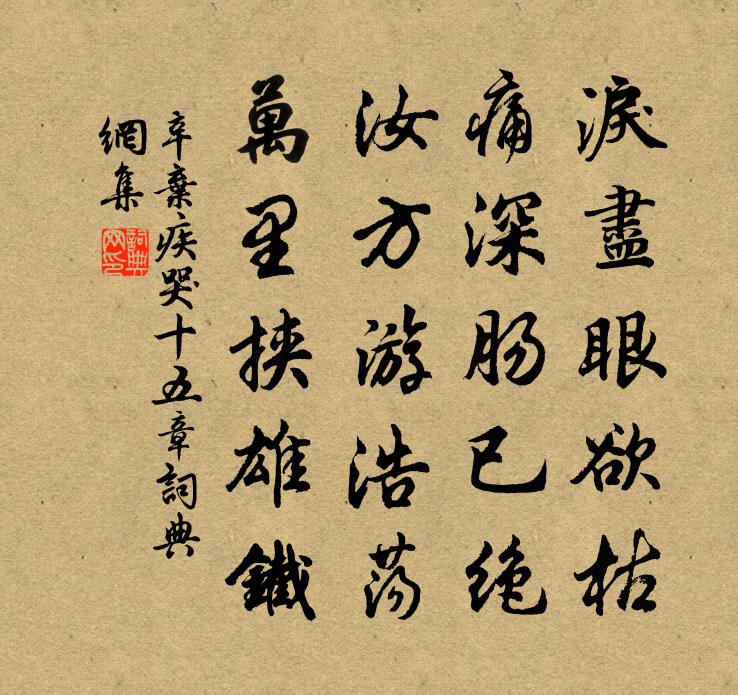 淚盡眼欲枯
痛深肠已绝
汝方游浩荡
萬里挟雄鐵
辛棄疾哭十五章詞典
網集
詞典
网印